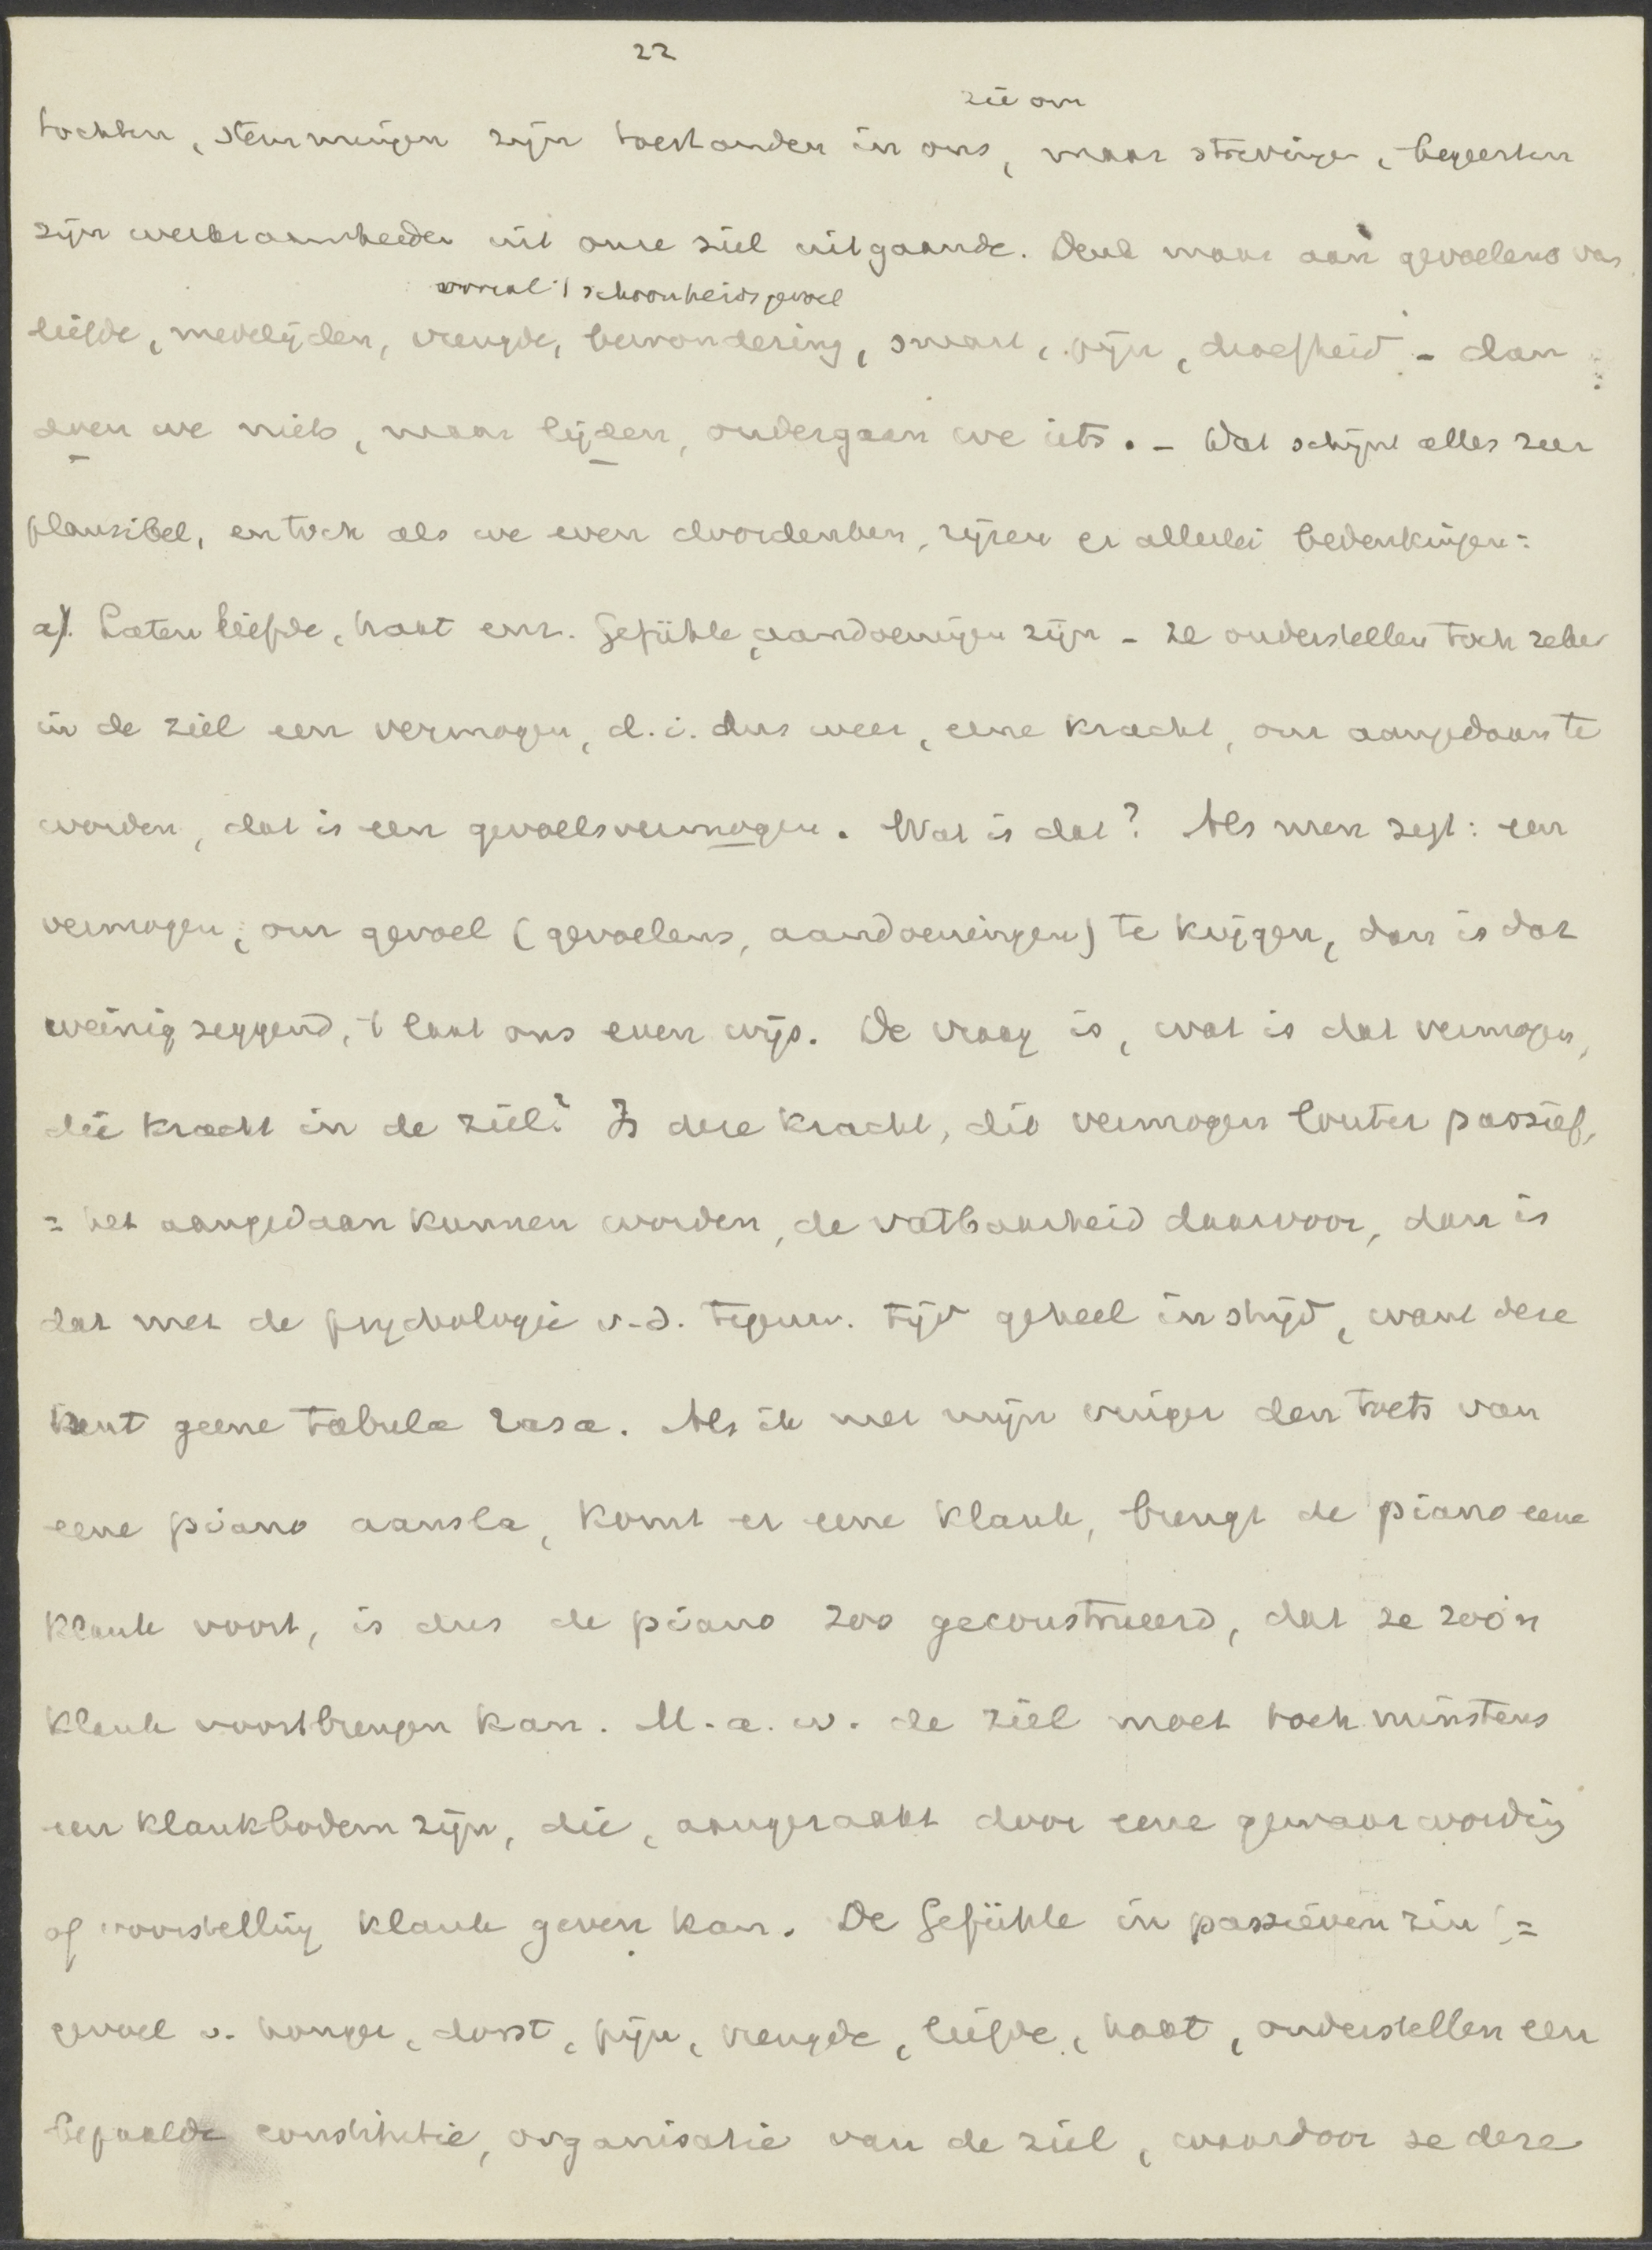 22
zie om
tochten, stemmingen zijn toestanden in ons, maar strevingen, begeerten
zijn werkzaamheden uit onze ziel uitgaande. Denk maar aan gevoelens van
vooral 't schoonheidsgevoel
liefde, medelijden, vreugde, bewondering, smart, pijn, droefheid - dan
doen we niets, maar lijden, ondergaan we iets. - Dat schijnt alles zeer
plausibel, en toch als we even doordenken, rijzen er allerlei bedenkingen:
a). Laten liefde, haat enz. Gefühle, aandoeningen zijn - ze onderstellen toch zeker
in de ziel een vermogen, d.i. dus weer, eene kracht, om aangedaan te
worden, dat is een gevoelsvermogen. Wat is dat? Als men zegt: een
vermogen, om gevoel (gevoelens, aandoeningen) te krijgen, dan is dat
weinig zeggend, 't laat ons even wijs. De vraag is, wat is dat vermogen,
die kracht in de ziel? Is deze kracht, dit vermogen louter passief,
= het aangedaan kunnen worden, de vatbaarheid daarvoor, dan is
dat met de psychologie v.d. tegenw. tijd geheel in strijd, want deze
kent geene tabula rasa. Als ik met mijn vinger den toets van
eene piano aansla, komt er eene klank, brengt de piano eene
klank voort, is dus de piano zoo geconstrueerd, dat ze zoo'n
klank voortbrengen kan. M.a.w. de ziel moet toch minstens
een klankbodem zijn, die, aangeraakt door eene gewaarwording
of voorstelling klank geven kan. De Gefühle in passieven zin, =
gevoel v. honger, dorst, pijn, vreugde, liefde, haat, onderstellen een
bepaalde constitutie, organisatie van de ziel, waardoor ze deze